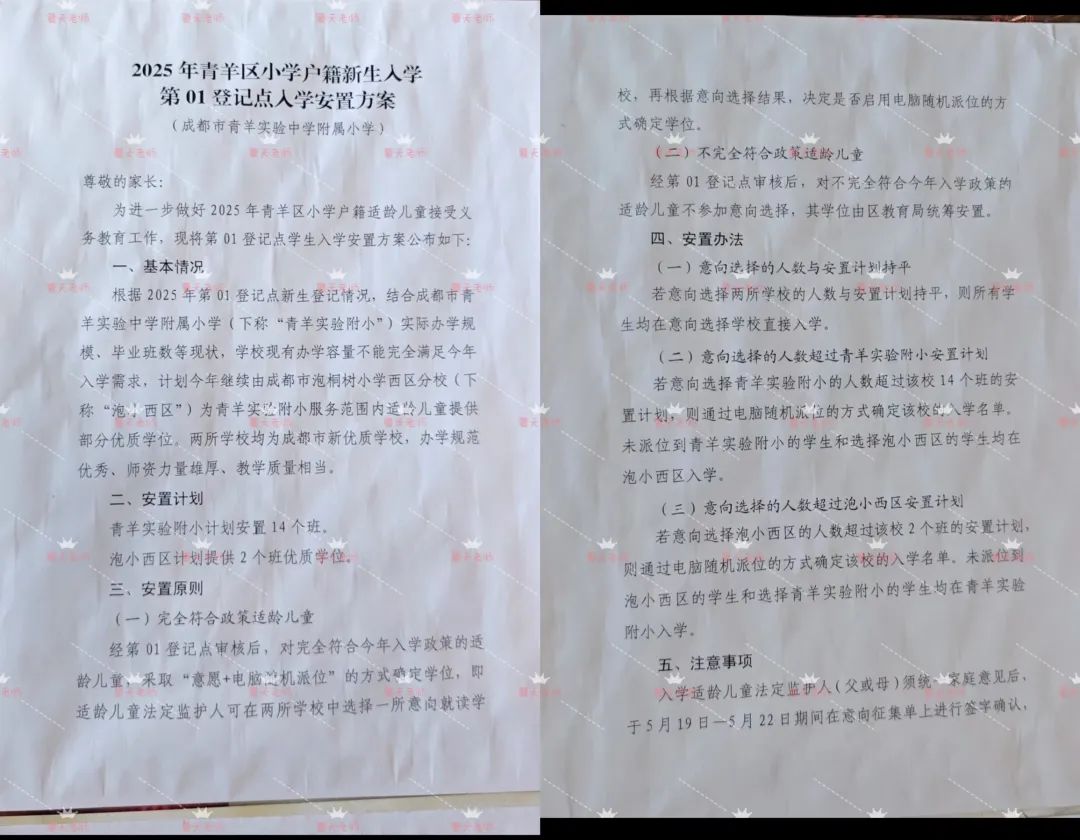 2025 年青羊区小学户籍新生入学
第 01 登记点入学安置方案
（成都市青羊实验中学附属小学）
尊敬的家长：
为进一步做好 2025 年青羊区小学户籍适龄儿童接受义
务教育工作，现将第 01 登记点学生入学安置方案公布如下：
一、基本情况
根据 2025 年第 01 登记点新生登记情况，结合成都市青
羊实验中学附属小学（下称“青羊实验附小”）实际办学规
模、毕业班数等现状，学校现有办学容量不能完全满足今年
入学需求，计划今年继续由成都市泡桐树小学西区分校（下
称“泡小西区”）为青羊实验附小服务范围内适龄儿童提供
部分优质学位。两所学校均为成都市新优质学校，办学规范
优秀、师资力量雄厚、教学质量相当。
二、安置计划
青羊实验附小计划安置 14 个班。
泡小西区计划提供 2 个班优质学位。
三、安置原则
（一）完全符合政策适龄儿童
经第 01 登记点审核后，对完全符合今年入学政策的适
龄儿童，采取“意愿+电脑随机派位”的方式确定学位，即
适龄儿童法定监护人可在两所学校中选择一所意向就读学
校，再根据意向选择结果，决定是否启用电脑随机派位的方
式确定学位。
（二）不完全符合政策适龄儿童
经第 01 登记点审核后，对不完全符合今年入学政策的
适龄儿童不参加意向选择，其学位由区教育局统筹安置。
四、安置办法
（一）意向选择的人数与安置计划持平
若意向选择两所学校的人数与安置计划持平，则所有学
生均在意向选择学校直接入学。
（二）意向选择的人数超过青羊实验附小安置计划
若意向选择青羊实验附小的人数超过该校 14 个班的安
置计划，则通过电脑随机派位的方式确定该校的入学名单。
未派位到青羊实验附小的学生和选择泡小西区的学生均在
泡小西区入学。
（三）意向选择的人数超过泡小西区安置计划
若意向选择泡小西区的人数超过该校 2 个班的安置计划，
则通过电脑随机派位的方式确定该校的入学名单。未派位到
泡小西区的学生和选择青羊实验附小的学生均在青羊实验
附小入学。
五、注意事项
入学适龄儿童法定监护人（父或母）须统一家庭意见后，
于 5 月 19 日—5 月 22 日期间在意向征集单上进行签字确认，